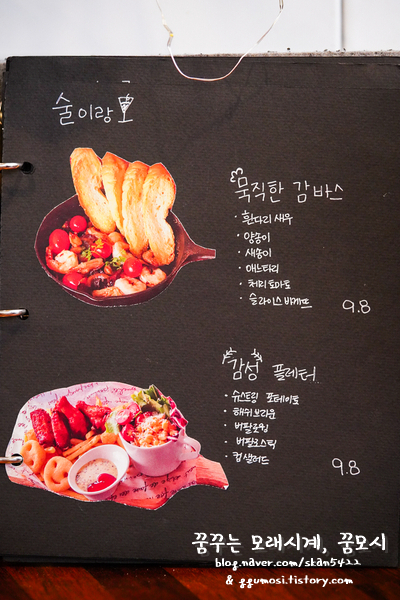 술이랑
묵직한 감바스
· 흰다리새우
· 양송이
· 새송이
· 애느타리
· 체리토마토
· 슬라이스 바게뜨
9.8
감성 플레터
· 슈스트링 포테이토
· 해쉬브라운
· 버팔로윙
· 버팔로스틱
· 컵샐러드
9.8
꿈꾸는 모래시계, 꿈모시
blog.naver.com/skan5422
& ggumosi.tistory.com